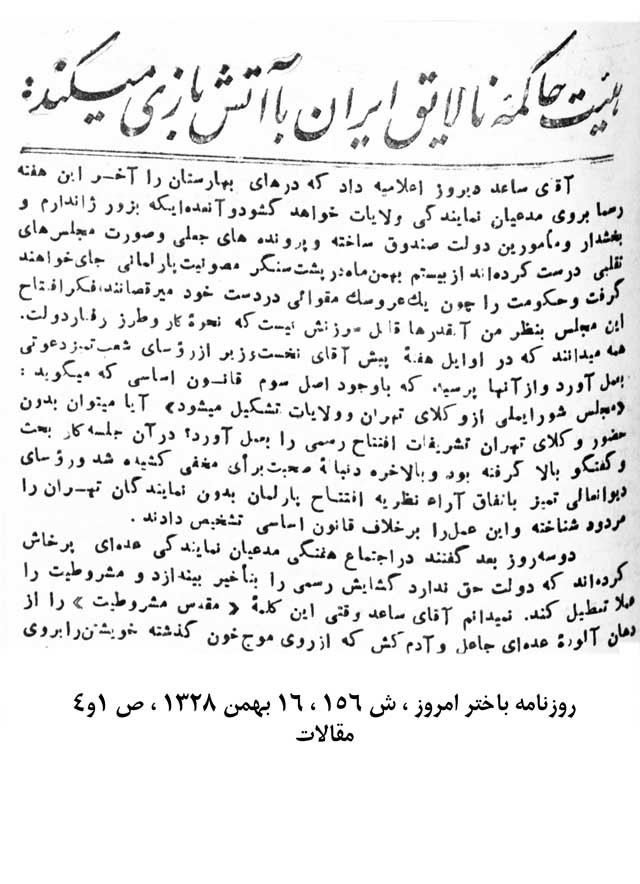 هیئت حاکمهٔ نالایق ایران با آتش بازی میکند:
آقای ساعد دیروز اعلامیه داد که درهای بهارستان را آخر این هفته
رسما بروی مدعیان نمایندگی ولایات خواهد گشود و آنعده‌ایکه بزور ژاندارم و
بخشدار و مأمورین دولت صندوق ساخته و پرونده های جعلی وصورت مجلس‌های
تقلبی درست کرده‌اند از بیستم بهمن‌ماه در پشت سنگر مصونیت پارلمانی جای خواهند
گرفت و حکومت را چون یك عروسك مقوائی در دست خود میرقصانند، فکر افتتاح
این مجلس بنظر من آنقدرها قابل سرزنش نیست که نحوهٔ کار و طرز رفتار دولت.
همه میدانند که در اوایل هفتهٔ پیش آقای نخست‌وزیر از رؤسای شعب تمیز دعوتی
بعمل آورد و از آنها پرسید که باوجود اصل سوم قانون اساسی که میگوید:
«مجلس شورایملی از وکلای تهران و ولایات تشکیل میشود» آیا میتوان بدون
حضور وکلای تهران تشریفات افتتاح رسمی را بعمل آورد؟ در آن جلسه کار بحث
و گفتگو بالا گرفته بود و بالاخره دنبالهٔ صحبت برأی مخفی کشیده شد و رؤسای
دیوانعالی تمیز باتفاق آراء نظریه افتتاح پارلمان بدون نمایندگان تهران را
مردود شناخته و این عمل را برخلاف قانون اساسی تشخیص دادند.
دوسه روز بعد گفتند در اجتماع هفتگی مدعیان نمایندگی عده‌ای پرخاش
کرده‌اند که دولت حق ندارد گشایش رسمی را بتأخیر بیندازد و مشروطیت را
عملا تعطیل کند. نمیدانم آقای ساعد وقتی این کلمهٔ «مقدس مشروطیت» را از
دهان آلودهٔ عده‌ای جاعل و آدم‌کش که از روی موج خون گذشته خویشتن را بروی
روزنامه باختر امروز ، ش ١٥٦ ، ١٦ بهمن ١٣٢٨ ، ص ١و٤
مقالات